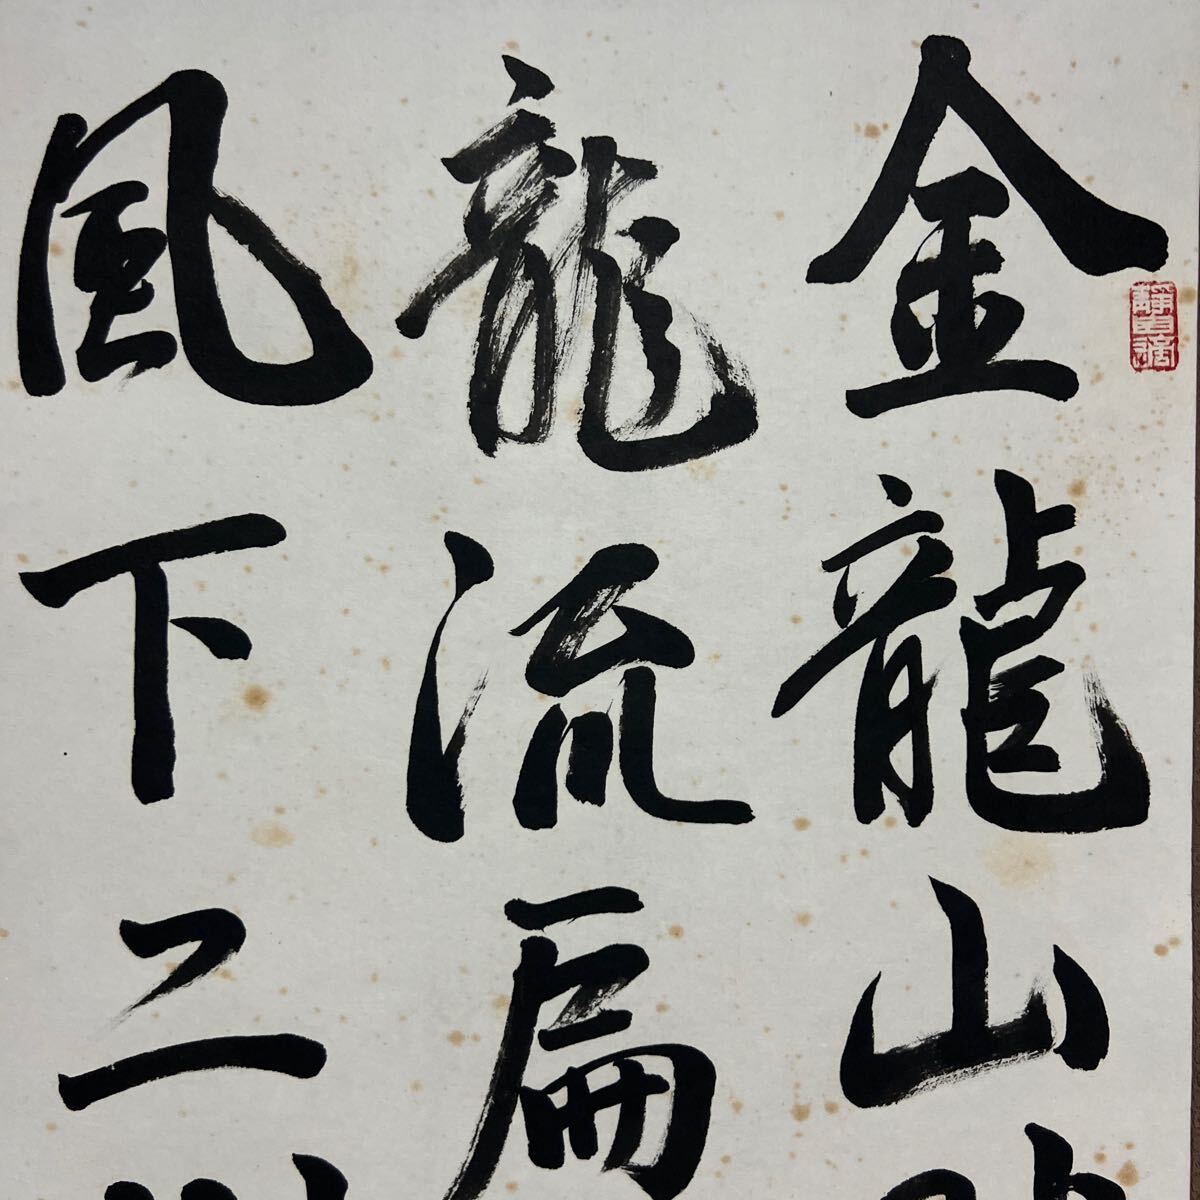 金龍山
龍流扁
風下二